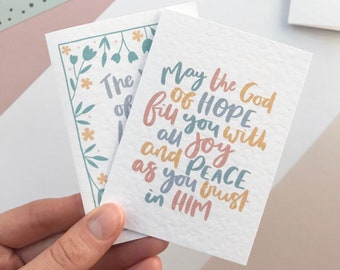 The
of
May the God
of HOPE
fill you with
all Joy
and PEACE
as you trust
in HIM